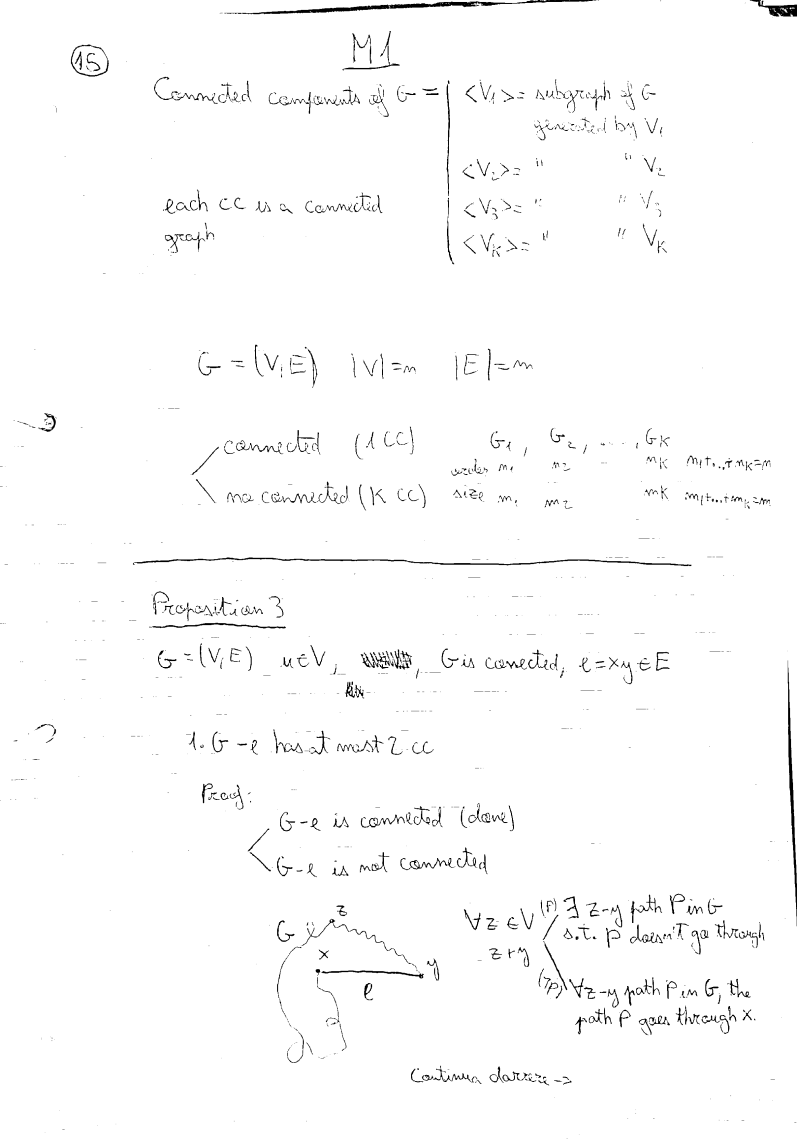 15
M1
Connected components of G = <V₁> = subgraph of G
generated by V₁
<V₂> = " " V₂
each CC is a connected <V₃> = " " V₃
graph <V_K> = " " V_K
G = (V, E) |V| = n |E| = m
connected (1 CC) G₁, G₂, ..., G_K
order n₁ n₂ - n_K n₁+...+n_K=n
no connected (K CC) size m₁ m₂ m_K m₁+...+m_K=m
Proposition 3
G = (V, E) u ∈ V, , G is conected, e = xy ∈ E
1. G - e has at most 2 cc
Proof:
G - e is connected (done)
G - e is not connected
G z x y e
∀z ∈ V (P) ∃ z-y path P in G
s.t. P doesn't go through
z ≠ y
(¬P) ∀ z-y path P in G, the
path P goes through x.
Continua darrere ->